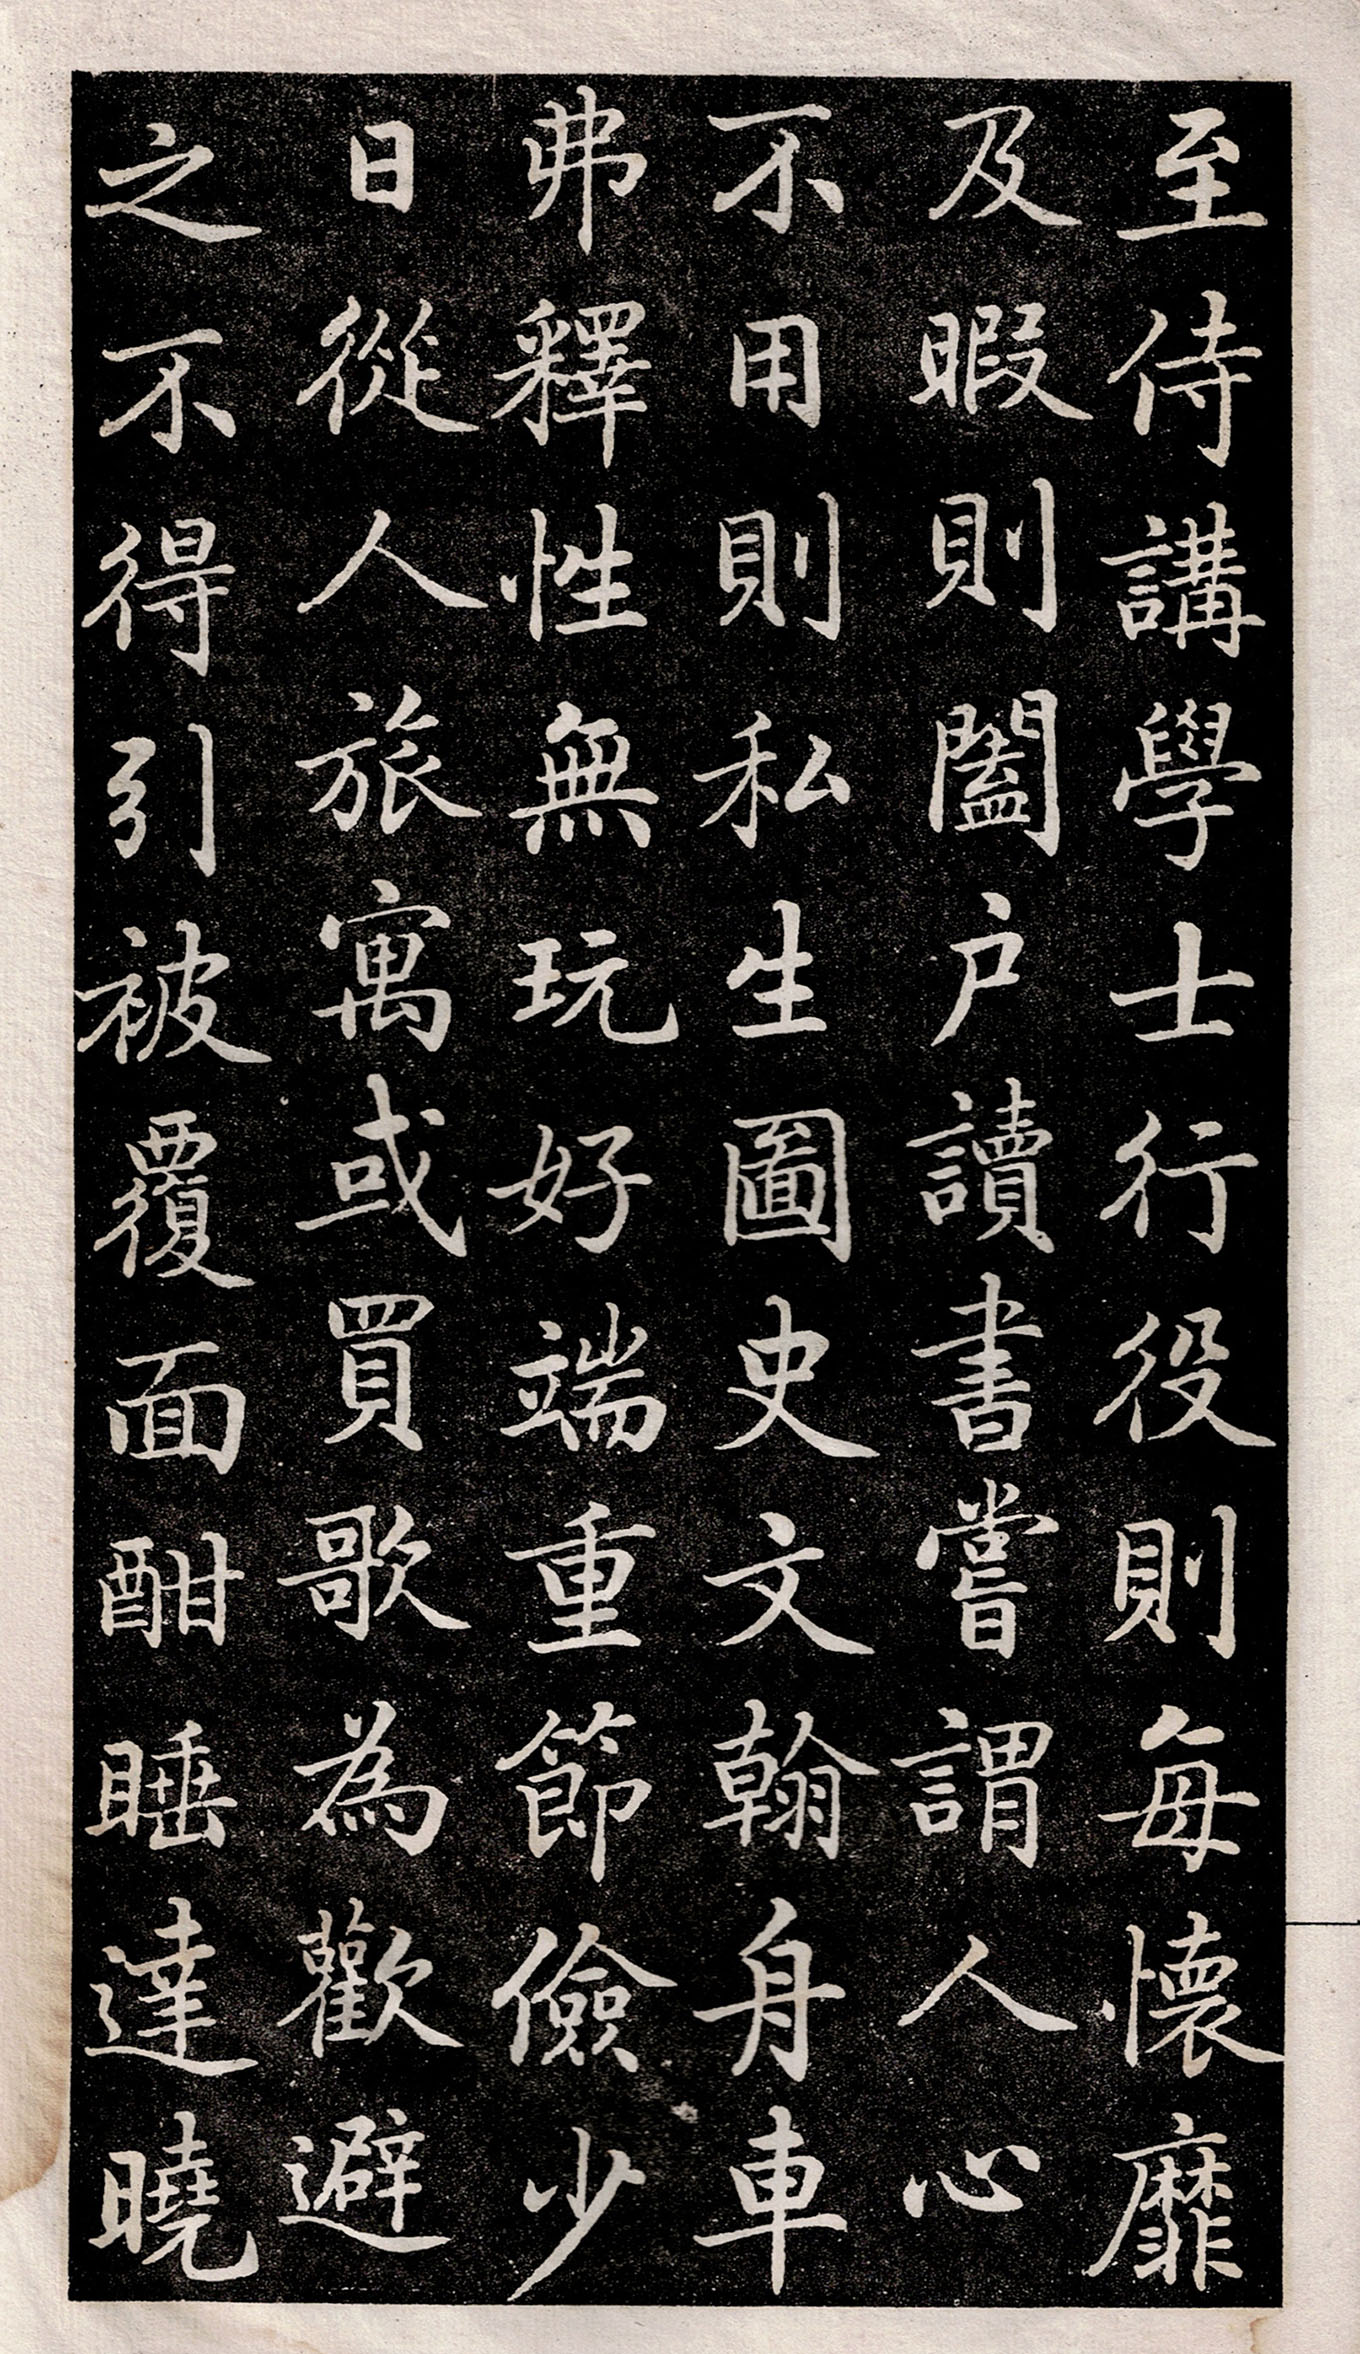 至侍講學士行役則每懷靡
及暇則闔戶讀書嘗謂人心
不用則私生圖史文翰舟車
弗釋性無玩好端重節儉少
日從人旅寓或買歌為歡避
之不得引被覆面酣睡達曉